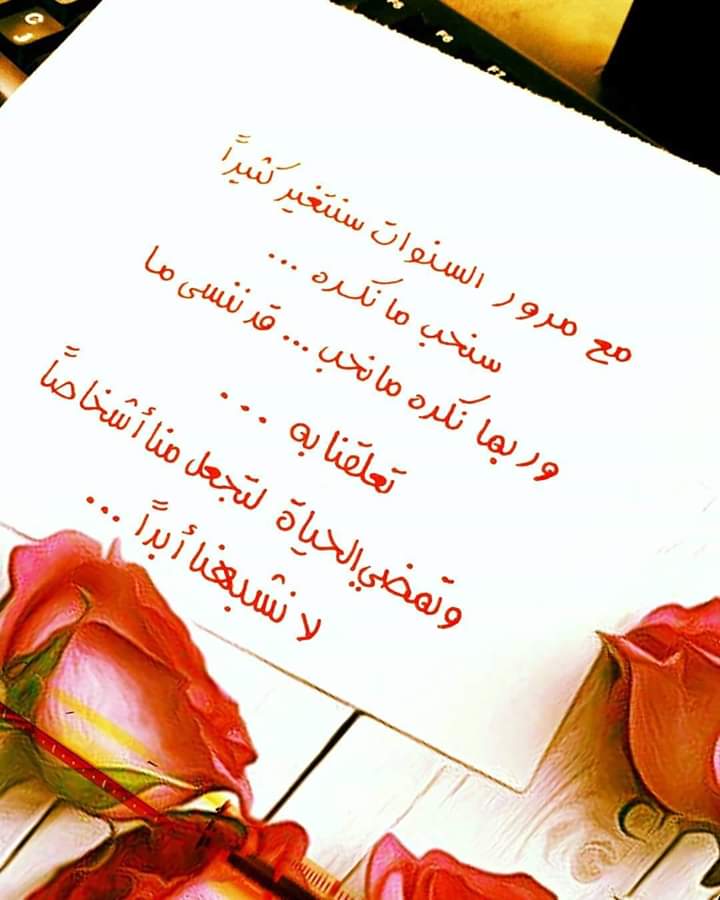 مع مرور السنوات سنتغير كثيراً
سنحب ما نكره ...
وربما نكره ما نحب ... قد ننسى ما
تعلقنا به ...
وتمضي الحياة لتجعل منا أشخاصاً
لا تشبهنا أبداً ...